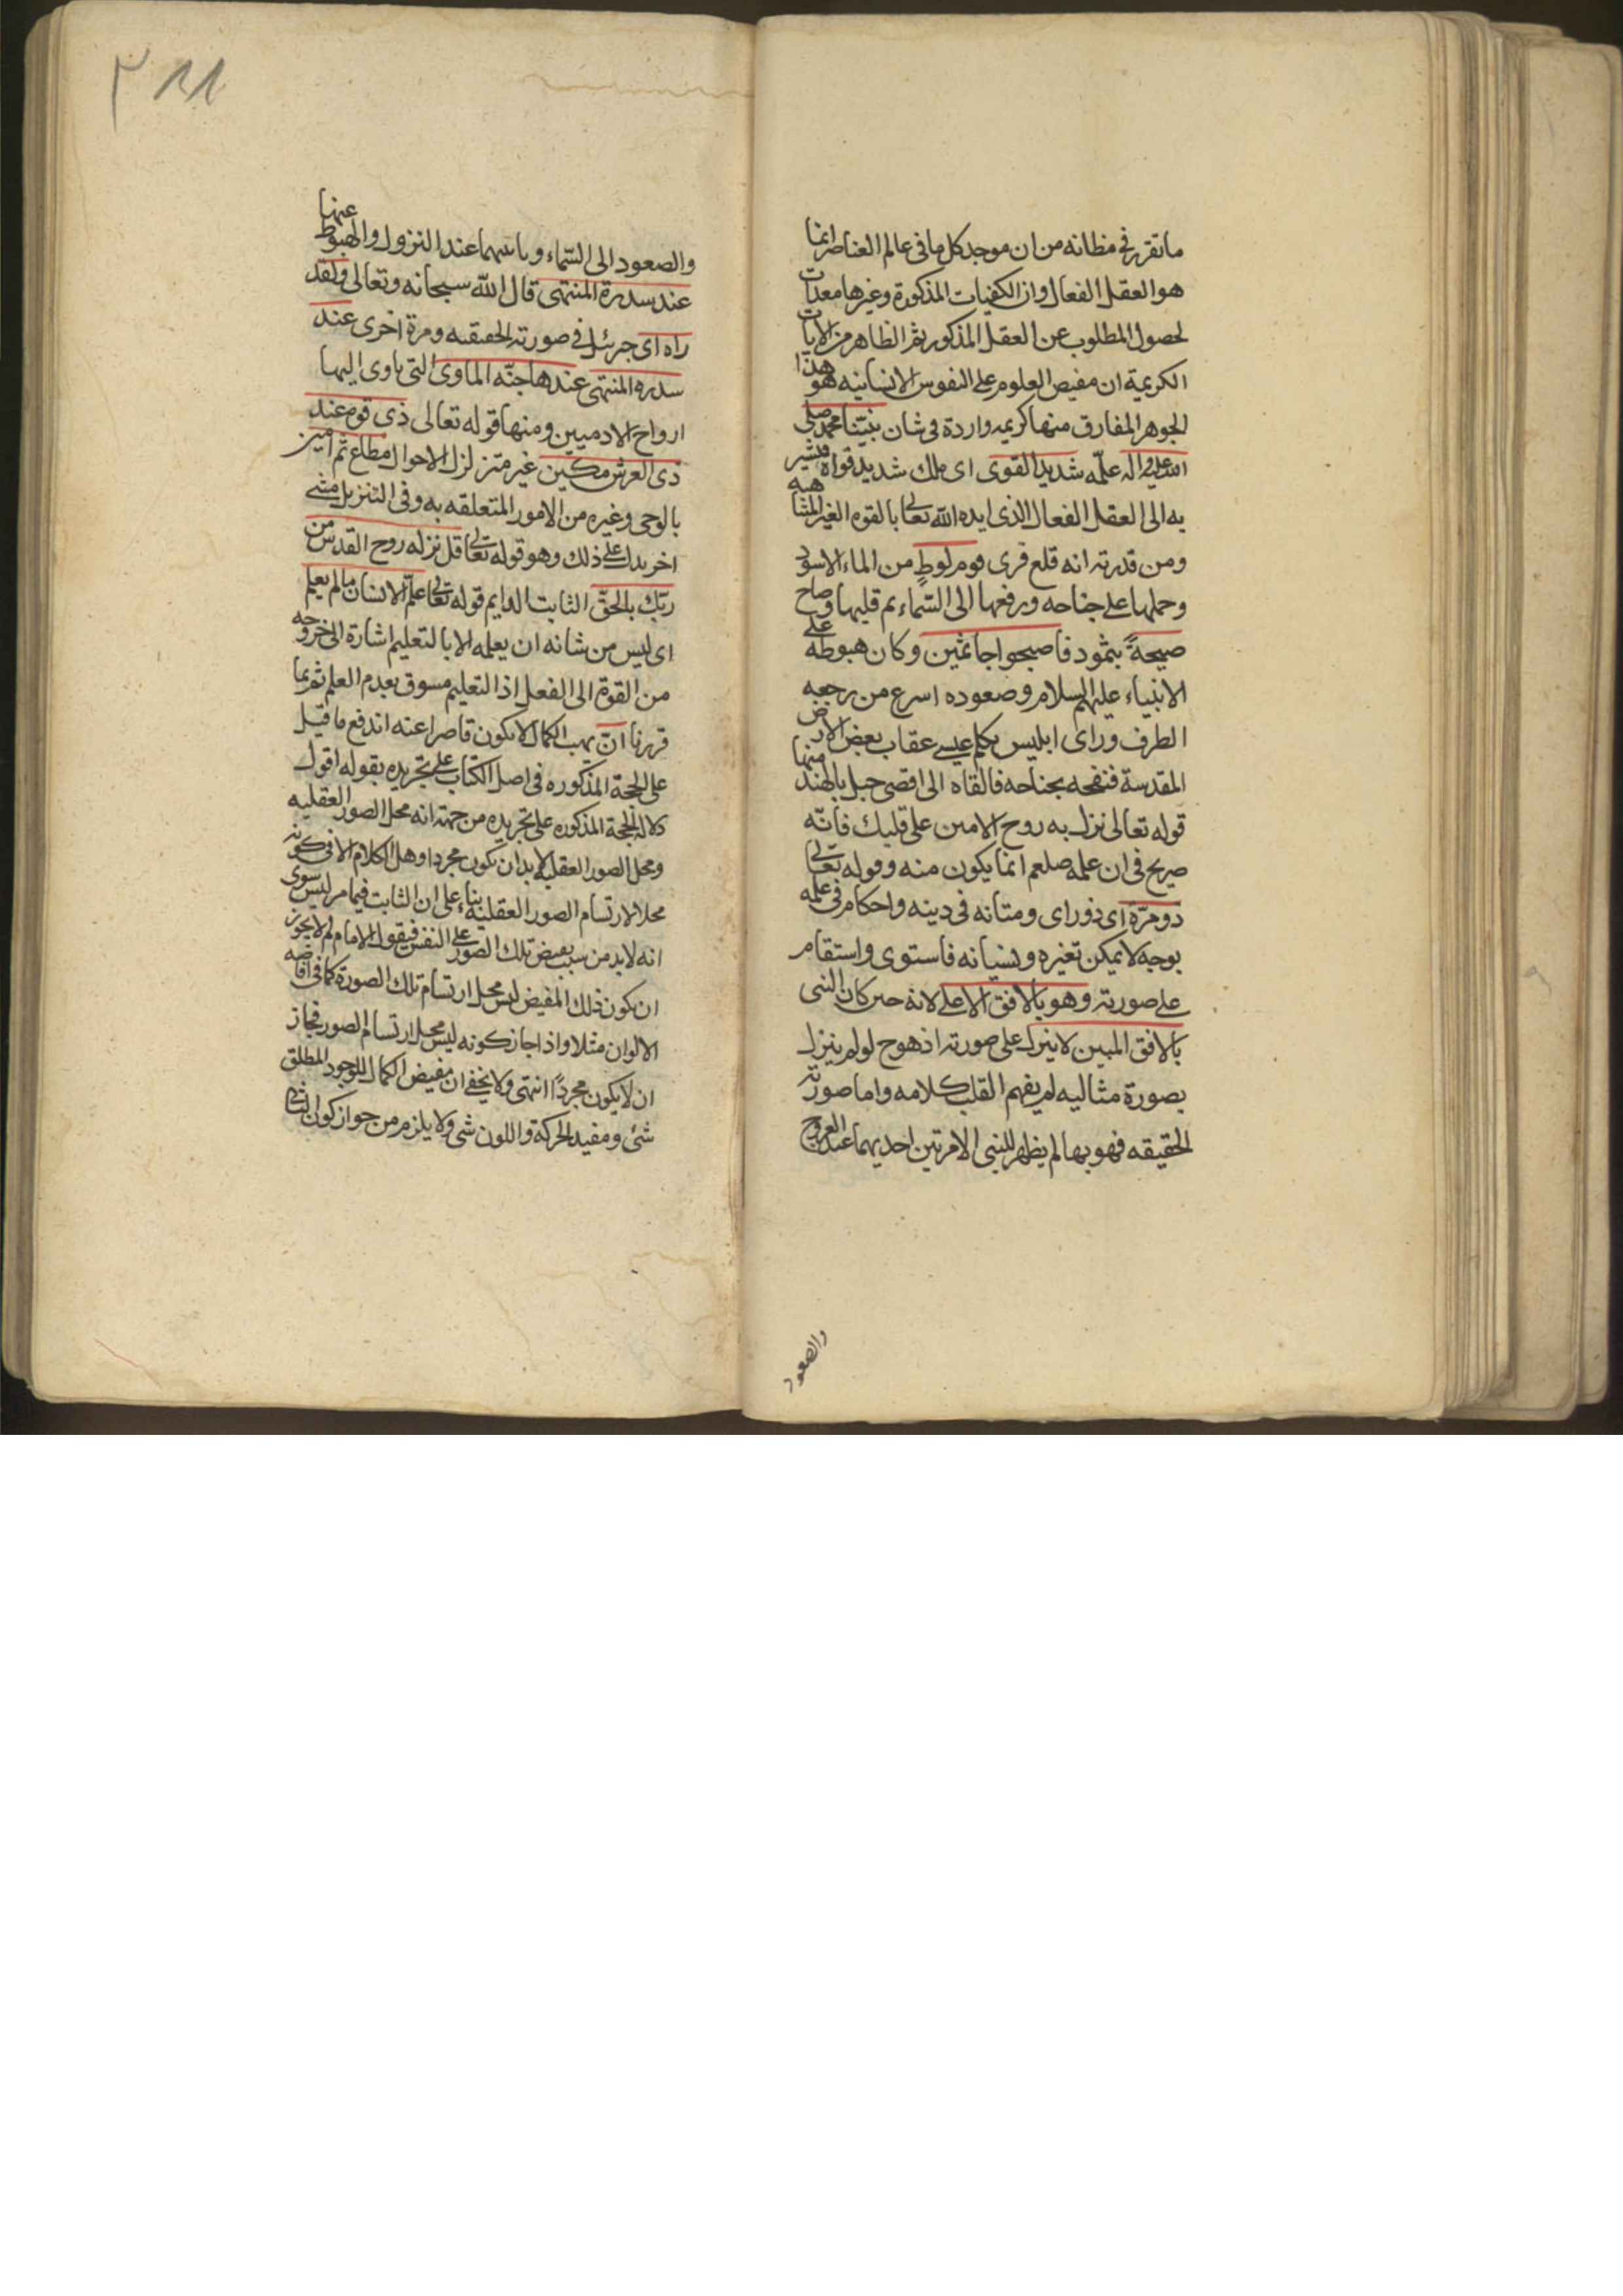 ما تقرر فى مظانه من ان موجد كل ما فى عالم العناصر انما
هو العقل الفعال وان الكيفيات المذكورة وغيرها معدات
لحصول المطلوب عن العقل المذكور ثم الظاهر من الايات
الكريمة ان مفيض العلوم على النفوس الانسانيه هو هذا
الجوهر المفارق منها كريمه واردة فى شان نبيّنا محمد صلى
الله عليه واله علّمه شديد القوى اى ملك شديد قواه مشير
به الى العقل الفعال الذى ايده الله تعالى بالقوه الغير المتناهيه
ومن قدرته انه قلع قرى قوم لوط من الماء الاسود
وحملها على جناحه ورفعها الى السّماء ثم قلبها وصاح
صيحةً بثمود فاصبحوا جاثمين وكان هبوطه على
الانبياء عليهم السلام وصعوده اسرع من رجعه
الطرف وراى ابليس يكلم عيسى عقاب بعض الارض
المقدسة فنفحه بجناحه فالقاه الى اقصى جبل بالهند منها
قوله تعالى نزل به روح الامين على قلبك فانّه
صريح فى ان علمه صلعم انما يكون منه وقوله تعالى
ذو مرّة اى ذو راى ومتانه فى دينه واحكام فى علمه
بوجه لا يمكن تغيره ونسيانه فاستوى واستقام
على صورته وهو بالافق الاعلى لانه حين كان النبى
بالافق المبين لا ينزل على صورته اذ هو ح لو لم ينزل
بصورة مثاليه لم يفهم القلب كلامه واما صورته
الحقيقه فهو بها لم يظهر للنبى الا مرتين احديهما عند العروج
والصعود
٣١١
والصعود الى السّماء وباسهما عند النزول والهبوط عنها
عند سدرة المنتهى قال الله سبحانه وتعالى ولقد
راه اى جرئيل فى صورته الحقيقيه ومرة اخرى عند
سدره المنتهى عندها جنّه الماوى التى ياوى اليها
ارواح الادميين ومنها قوله تعالى ذى قوه عند
ذى العرش مكين غير متزلزل الاحوال مطاع ثم امين
بالوحى وغيره من الامور المتعلقه به وفى التنزيل مشى
اخر يدل على ذلك وهو قوله تعالى قل نزله روح القدس من
ربّك بالحقّ الثابت الدايم قوله تعالى علّم الانسان ما لم يعلم
اى ليس من شانه ان يعلمه الا بالتعليم اشارة الى خروجه
من القوة الى الفعل اذ التعليم مسوق بعدم العلم ثم بما
قررنا انّ يهب الكمال لا يكون قاصرا عنه اندفع ما قيل
على الحجة المذكوره فى اصل الكتاب على تجريده بقوله اقول
دلاله الحجة المذكوره على تجريده من جهة انه محل الصور العقليه
ومحل الصور العقليه لا بد ان يكون مجردا وهل الكلام الا فى كونه
محلا لارتسام الصور العقليه بناء على ان الثابت فيما مر ليس سوى
انه لا بد من سبب يفيض تلك الصور على النفس فيقول الامام لم لا يجوز
ان يكون ذلك المفيض ليس محل ارتسام تلك الصورة كما فى افاضه
الالوان مثلا واذا جاز كونه ليس محل ارتسام الصور فجاز
ان لا يكون مجرداً انتهى ولا يخفى ان مفيض الكمال للوجود المطلق
شئ ومفيد الحركة واللون شى ولا يلزم من جواز كون الثانى